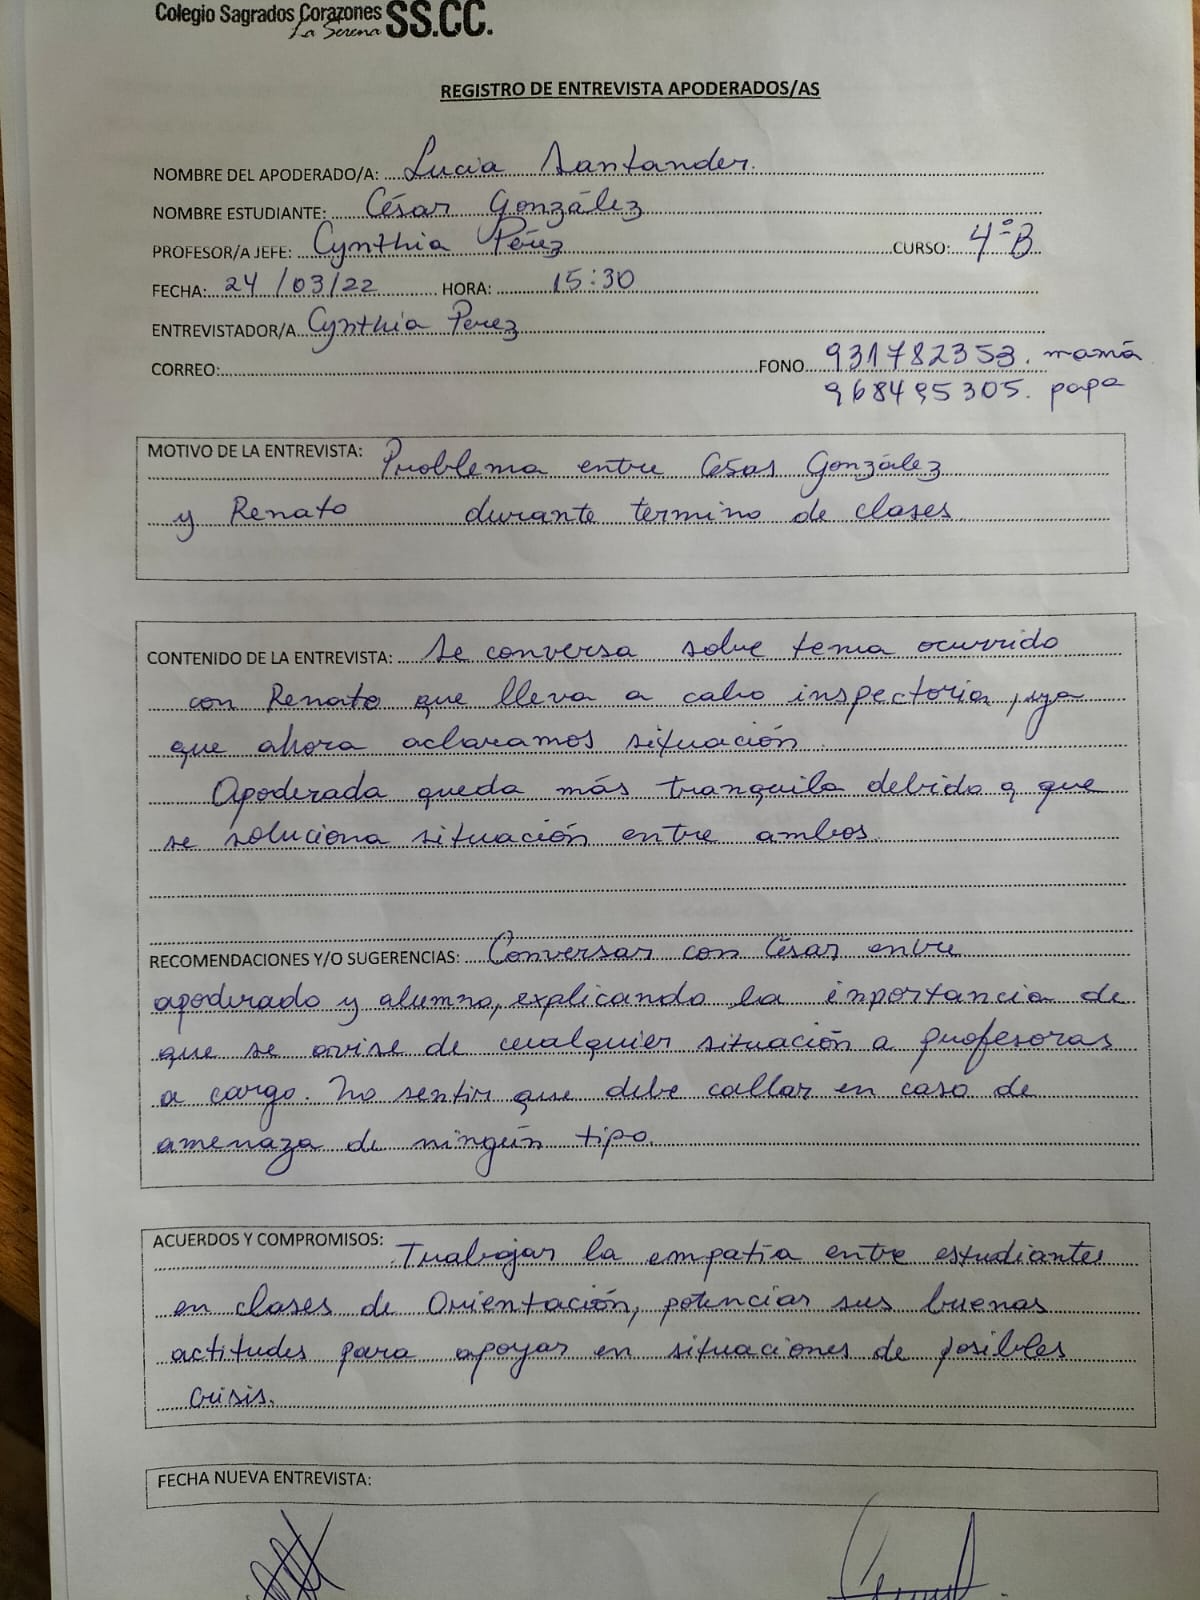 Colegio Sagrados Corazones SS.CC.
La Serena
REGISTRO DE ENTREVISTA APODERADOS/AS
NOMBRE DEL APODERADO/A: Lucia Santander.
NOMBRE ESTUDIANTE: César González
PROFESOR/A JEFE: Cynthia Pérez CURSO: 4°B
FECHA: 24/03/22 HORA: 15:30
ENTREVISTADOR/A Cynthia Perez
CORREO: FONO 931782353. mamá
968495305. papa
MOTIVO DE LA ENTREVISTA: Problema entre César González
y Renato durante termino de clases
CONTENIDO DE LA ENTREVISTA: Se conversa sobre tema ocurrido
con Renato que lleva a cabo inspectoria, ya
que ahora aclaramos situación.
Apoderada queda más tranquila debido a que
se soluciona situación entre ambos.
RECOMENDACIONES Y/O SUGERENCIAS: Conversar con César entre
apoderado y alumno, explicando la inportancia de
que se avise de cualquier situación a profesoras
a cargo. No sentir que debe callar en caso de
amenaza de ningún tipo.
ACUERDOS Y COMPROMISOS: Trabajar la empatía entre estudiantes
en clases de Orientación, potenciar sus buenas
actitudes para apoyar en situaciones de posibles
crisis.
FECHA NUEVA ENTREVISTA: